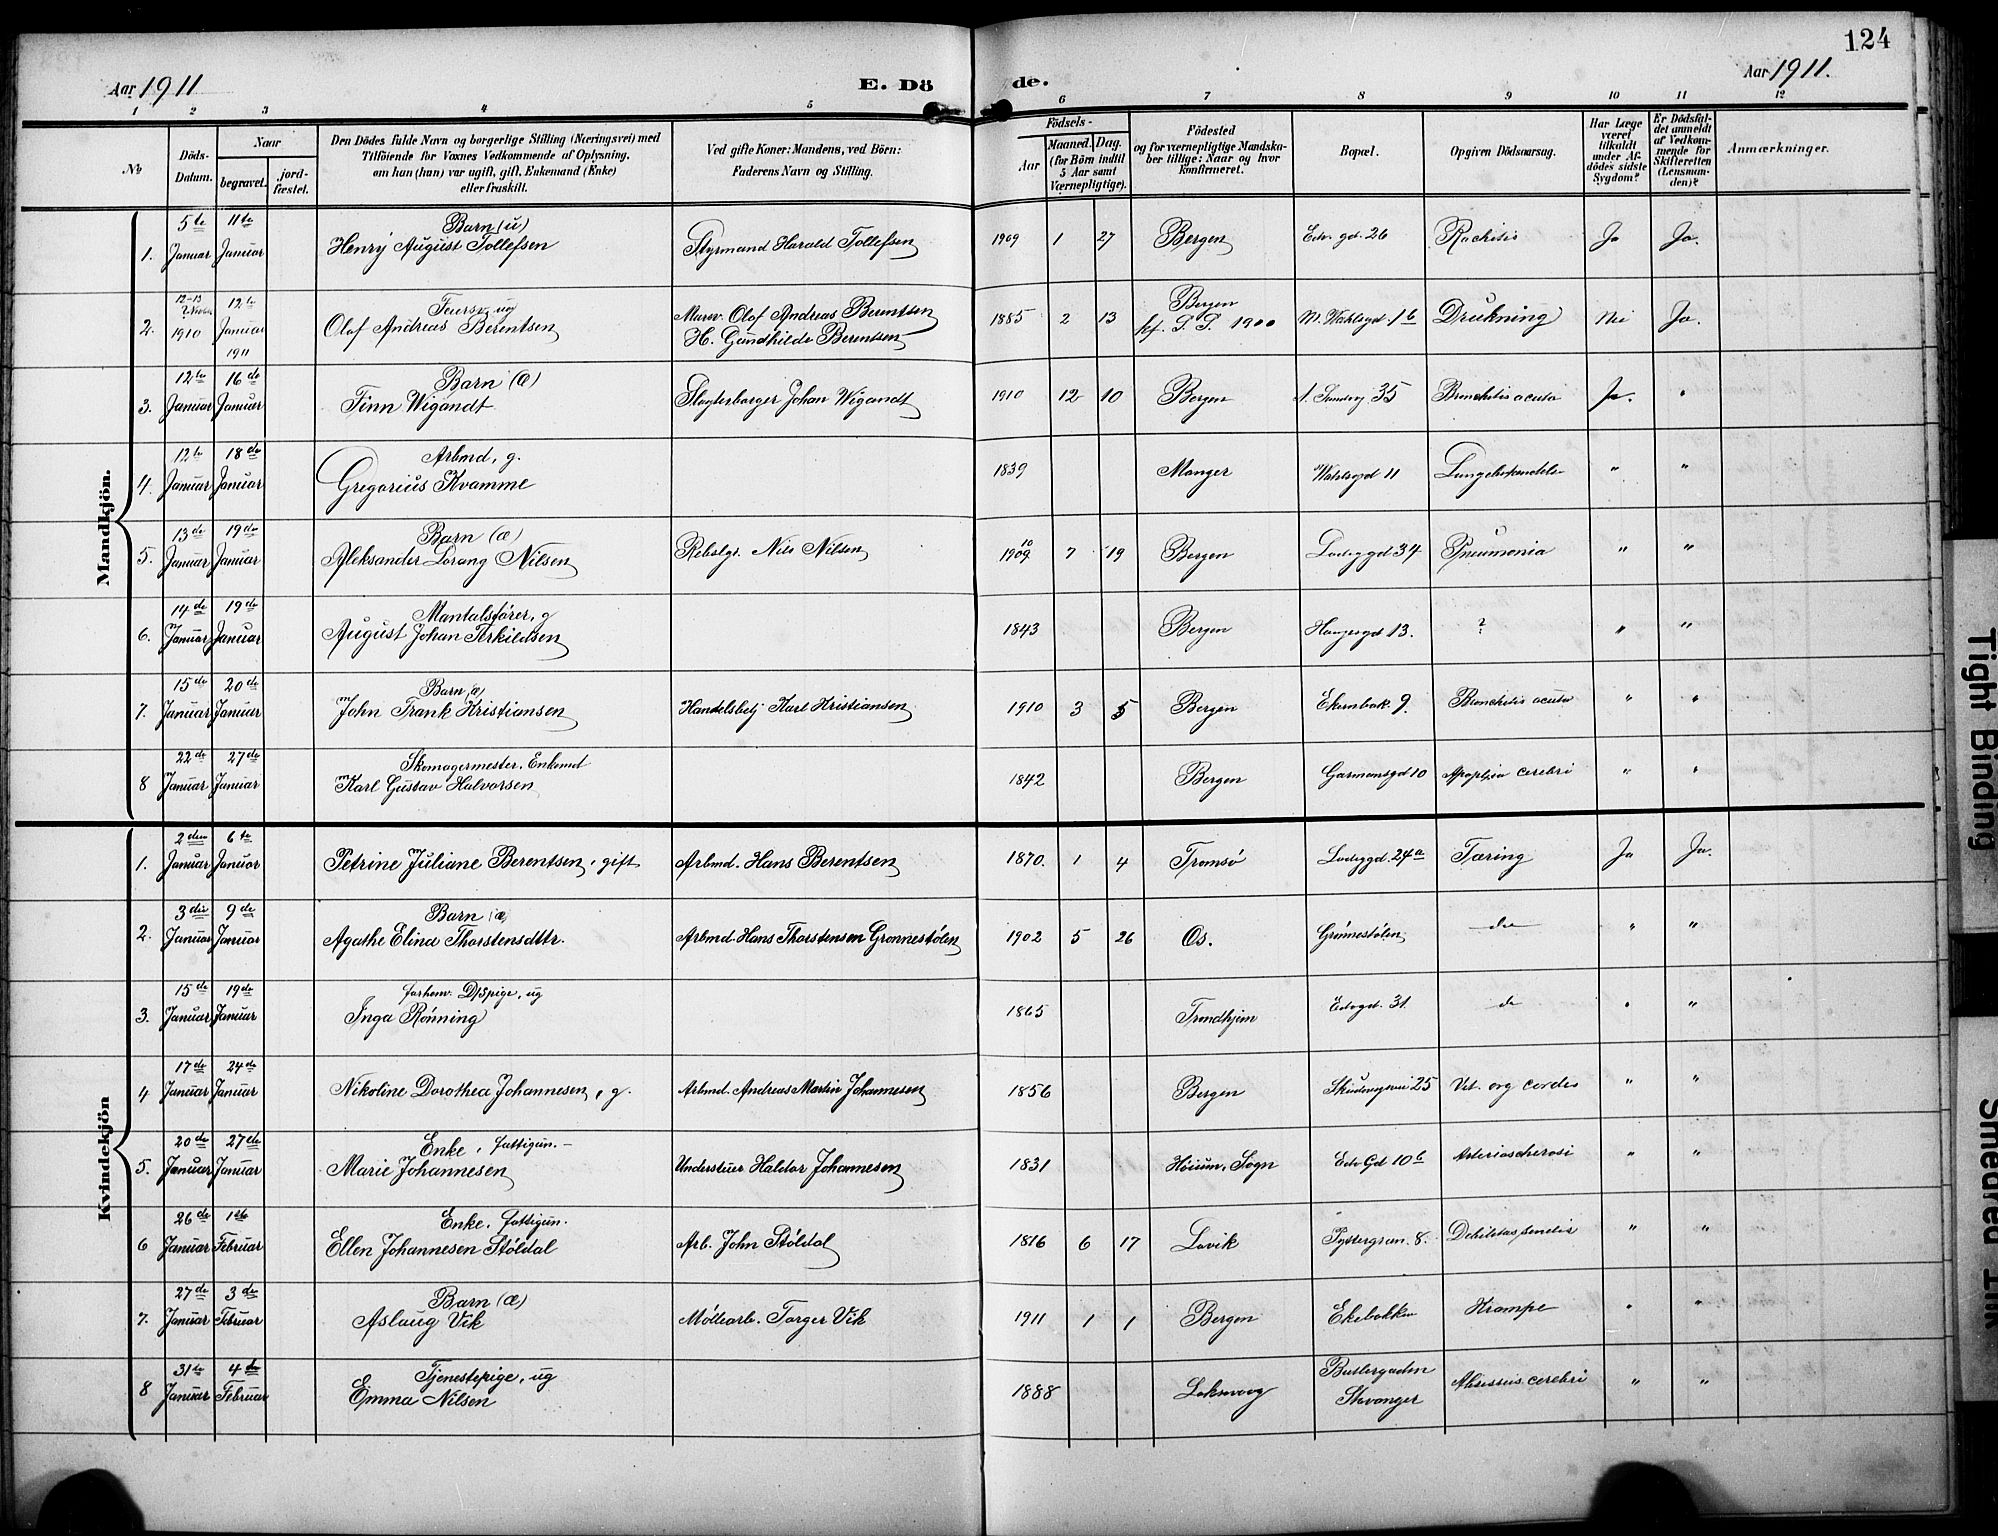 124
Aar 1911
E. Dö
de.
Aar 1911.
1 2 3 4 5 6 7 8 9 10 11 12
No
Döds-
Datum.
Naar
begravet.
jord-
fæstet.
Den Dödes fulde Navn og borgerlige Stilling (Næringsvei) med
Tilföiende for Voxnes Vedkommende af Oplysning,
om han (hun) var ugift, gift, Enkemand (Enke)
eller fraskilt.
Ved gifte Koner: Mandens, ved Börn:
Faderens Navn og Stilling.
Födsels-
Aar
Maaned. Dag.
(for Börn indtil
5 Aar samt
Værnepligtige).
Födested
og for værnepligtige Mandska-
ber tillige: Naar og hvor
konfirmeret.
Bopæl.
Opgiven Dödsaarsag.
Har Læge
været
tilkaldt
under Af-
dödes sidste
Sygdom?
Er Dödsfal-
det anmeldt
af Vedkom-
mende for
Skifteretten
(Lensman-
den)?
Anmærkninger.
Mandkjön.
5te 11te Barn (u)
1. Januar Januar Henry August Tollefsen Styrmand Harald Tollefsen 1909 1 27 Bergen Edv. gd. 26 Rachitis Ja Ja.
12-13 12te ug Bergen
2. 1910 Januar Olaf Andreas Berentsen Olaf Andreas Berentsen 1885 2 13 1900 16 Drukning Nei Ja.
1911 H. Gundhilde Berentsen
12te 16de Barn (æ)
3. Januar Januar Finn Wigandt Johan Wigandt 1910 12 10 Bergen 35 Bronchitis acuta Ja. "
12te 18de Arbmd, g.
4. Januar Januar Gregorius Kvamme 1839 Manger 11 " "
13de 19de Barn (æ)
5. Januar Januar Aleksander Lorang Nilsen Rebslgr. Nils Nilsen 1909 10 7 19 Bergen Ladeggd 34 Pneumonia " "
14de 19de Mantalsfører, g
6. Januar Januar August Johan Terkildsen 1843 Bergen 13. ? " "
15de 20de Barn æ
7. Januar Januar John Frank Kristiansen Handelsbetj Karl Kristiansen 1910 3 5 Bergen 9. Bronchitis acuta " "
22de 27de Skomagermester, Enkemd
8 Januar Januar Karl Gustav Halvorsen 1842 Bergen Garmansgd 10 Apoplexia cerebri " "
Kvindekjön
2den 6te
1. Januar Januar Petrine Juliane Berentsen, gift Arbmd. Hans Berentsen 1870. 1 4 Tromsø Ladeggd. 24a Tæring Ja Ja.
3die 9de Barn (æ)
2. Januar Januar Agathe Elina Thorstensdttr. Arbmd. Hans Thorstensen Grønnestølen 1902 5 26 Os. Grønnestølen do " "
15de 19de forhenv. Dspige, ug
3. Januar Januar Inga Rønning 1865 Trondhjem Edvgd. 31 do " "
17de 24de
4 Januar Januar Nikoline Dorothea Johannesen, g. Arbmd. Andreas Martin Johannesen 1856 Bergen 25 Vit. org cordis " "
20de 27de Enke, fattigun. -
5. Januar Januar Marie Johannesen Haldor Johannesen 1831 Sogn Edv Gd 10b " "
26de 1ste Enke, fattigun.
6 Januar Februar Ellen Johannesen Støldal Arb. John Støldal 1816 6 17 Lavik 8. Debilitas senilis " "
27de 3de Barn (æ)
7. Januar Februar Aslaug Vik Møllearb. Torger Vik 1911 1 1 Bergen Ekebakken Krampe " "
31te 4de Tjenestepige, ug
8 Januar Februar Emma Nilsen 1888 Stavanger Absessus cerebri " "
Tight Binding
Smeared Ink